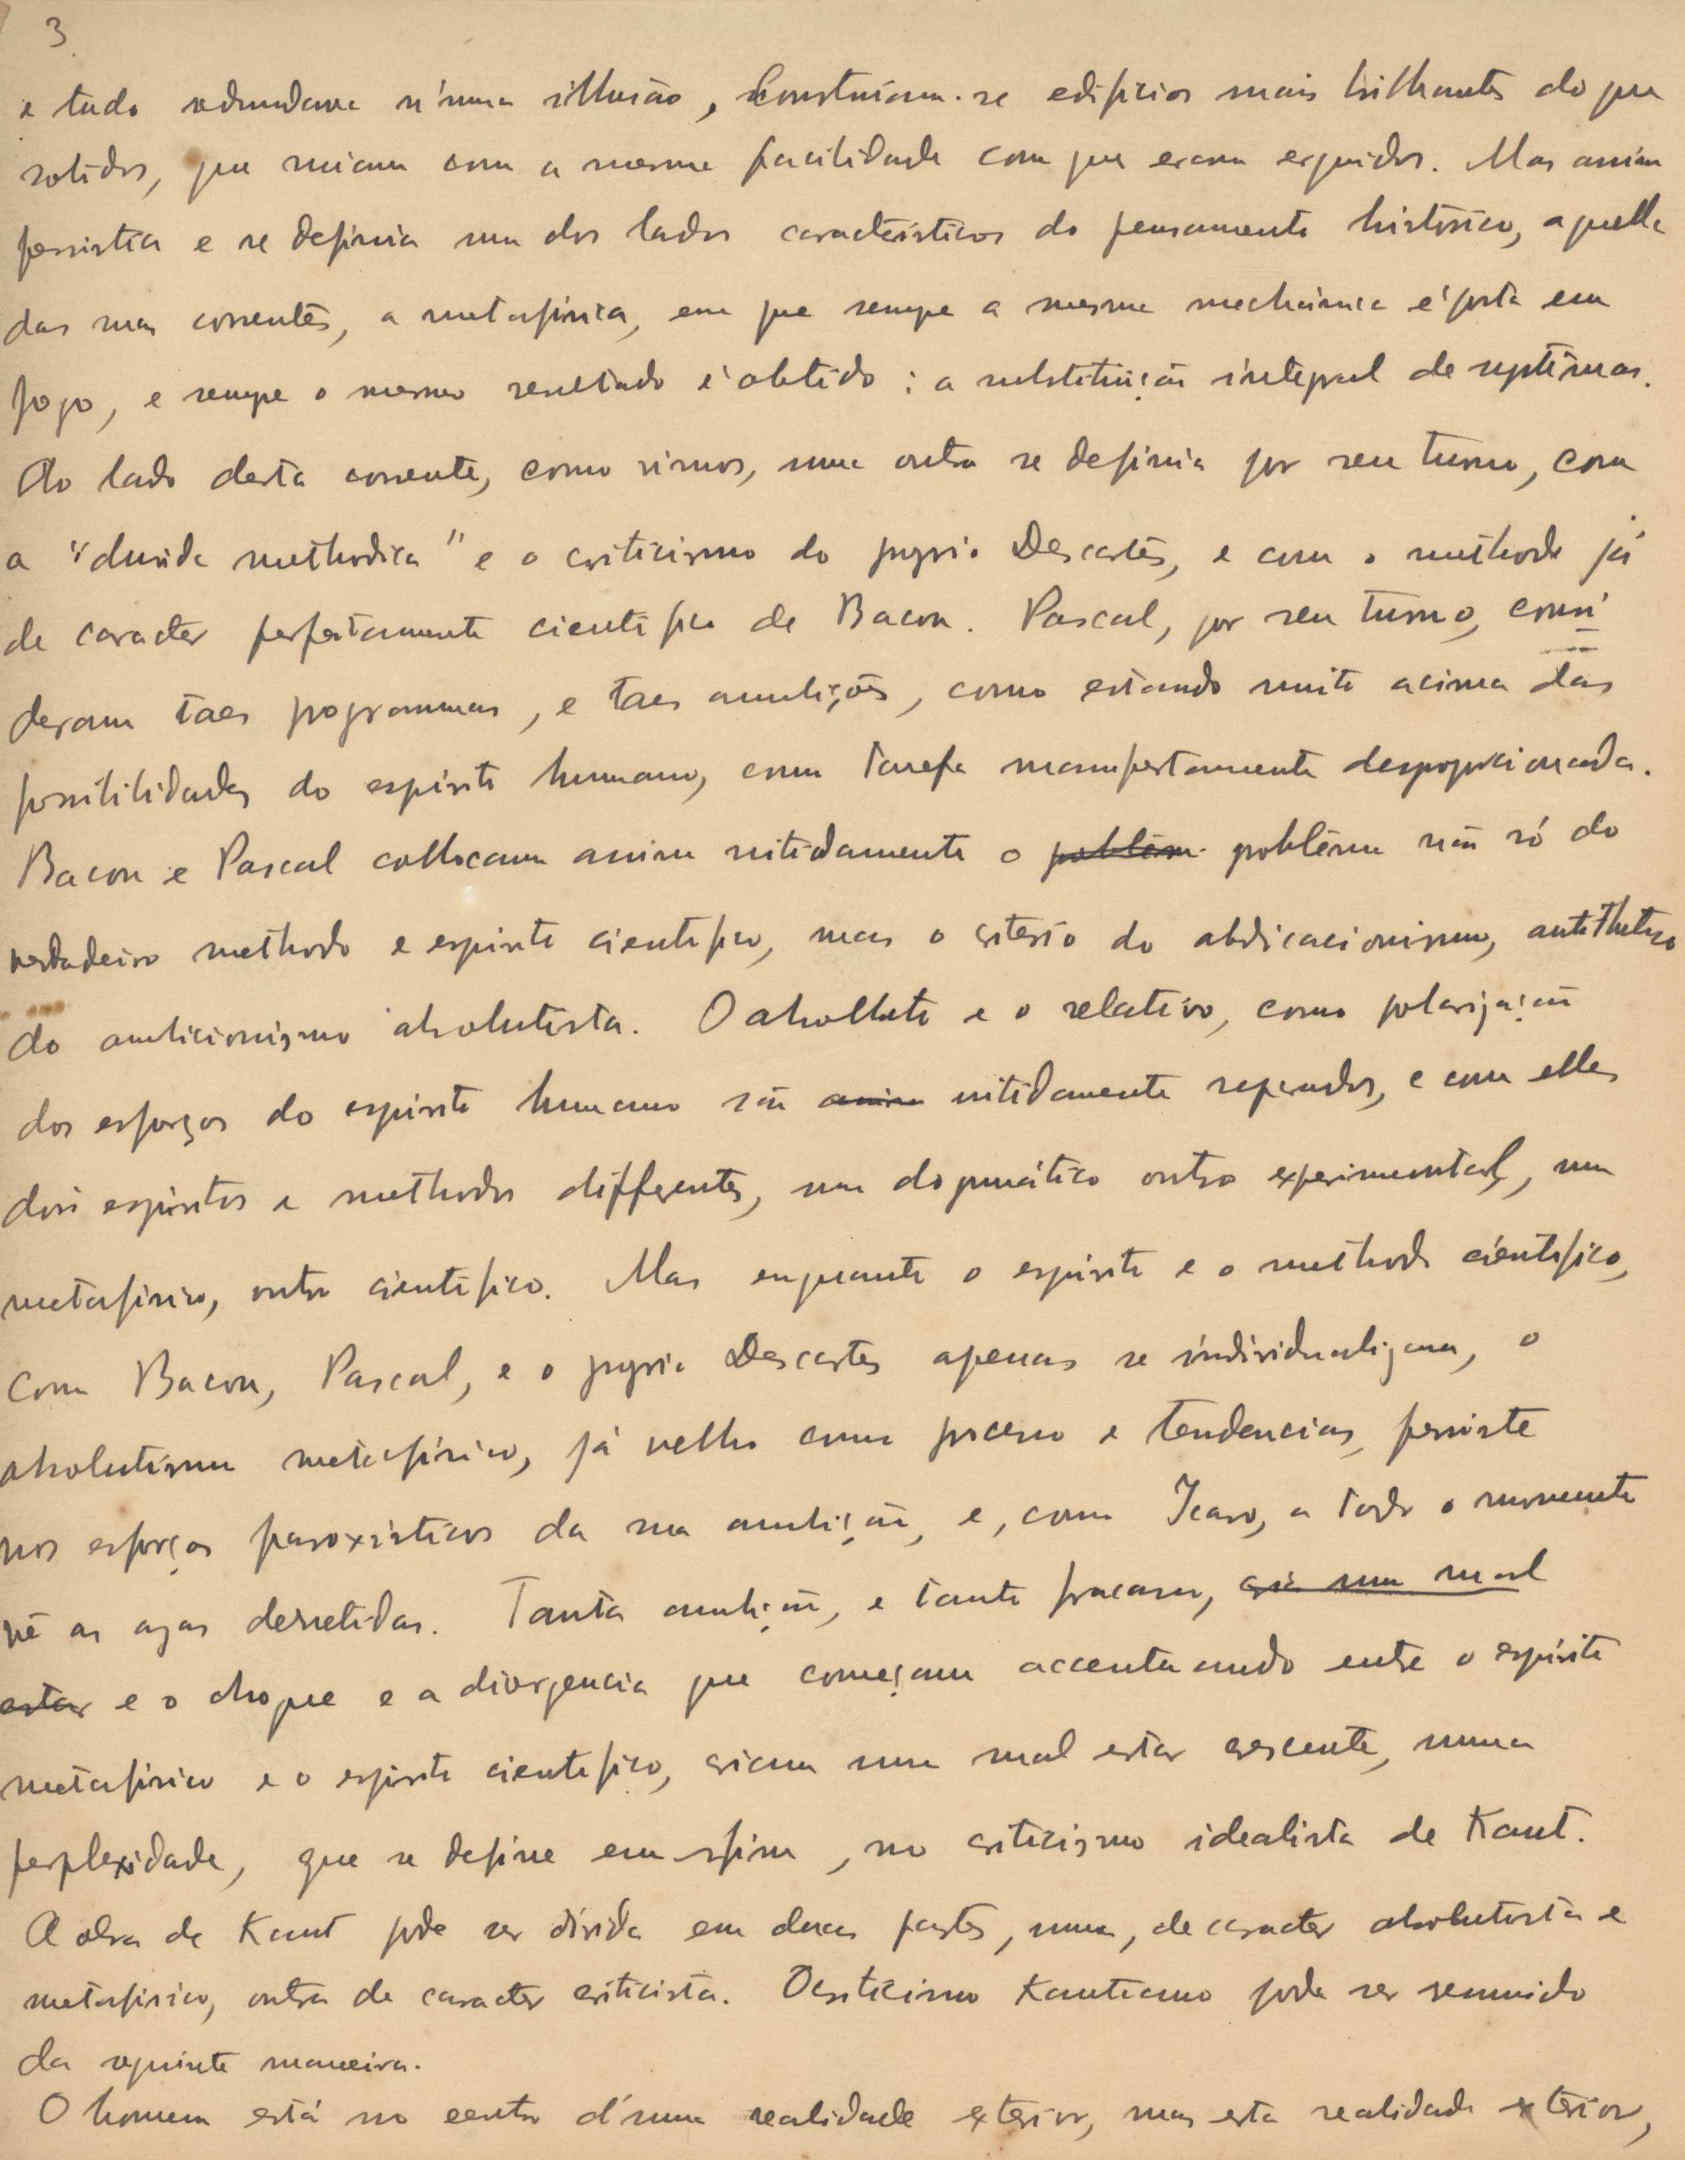 3
e tudo redundava n'uma illusão, Construiam-se edificios mais brilhantes do que
solidos, que ruiam com a mesma facilidade com que eram erguidos. Mas assim
persistia e se definia um dos lados caracteristicos do pensamento historico, aquelle
das suas correntes, a metafisica, em que sempre a mesma mechanica é posta em
jogo, e sempre o mesmo resultado é obtido: a substituição integral de systêmas.
Ao lado desta corrente, como vimos, uma outra se definia por seu turno, com
a "duvida methodica" e o criticismo do proprio Descartes, e com o methodo já
de caracter perfeitamente cientifico de Bacon. Pascal, por seu turno, consi
deram taes programmas, e taes ambições, como estando muito acima das
possibilidades do espirito humano, como tarefa manifestamente desproporcionada.
Bacon e Pascal collocam assim nitidamente o problêm problêma não só do
verdadeiro methodo e espirito cientifico, mas o criterio do abdicacionismo, antithetico
do ambicionismo absolutista. O absolluto e o relativo, como polarização
dos esforços do espirito humano são assim nitidamente separados, e com elles
dois espiritos e methodos differentes, um dogmático outro experimental, um
metafisico, outro cientifico. Mas enquanto o espirito e o methodo cientifico,
com Bacon, Pascal, e o proprio Descartes apenas se individualizam, o
absolutismo metafisico, já velho como processo e tendencias, persiste
nos esforços paroxisticos da sua ambição, e, como Icaro, a todo o momento
vê as azas derretidas. Tanta ambição, e tanto fracasso, cria um mal
estar e o choque e a divergencia que começam accentuando entre o espirito
metafisico e o espirito cientifico, criam um mal estar crescente, numa
perplexidade, que se define em fim, no criticismo idealista de Kant.
A obra de Kant pode ser divida em duas partes, uma, de caracter absolutista e
metafisico, outra de caracter criticista. O criticismo Kantiano pode ser resumido
da seguinte maneira.
O homem está no centro d'uma realidade exterior, mas esta realidade exterior,